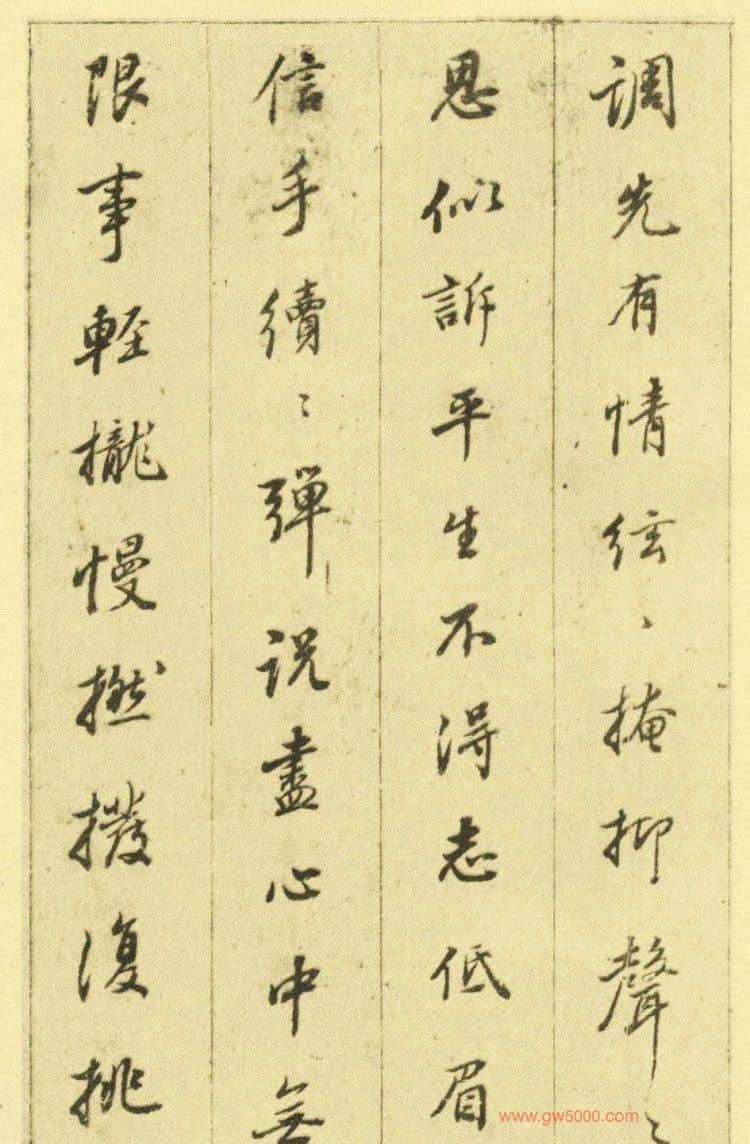 調先有情絃、掩抑聲〻
思似訴平生不得志低眉
信手續〻彈説盡心中無
限事輕攏慢撚撥復挑
www.gw5000.com